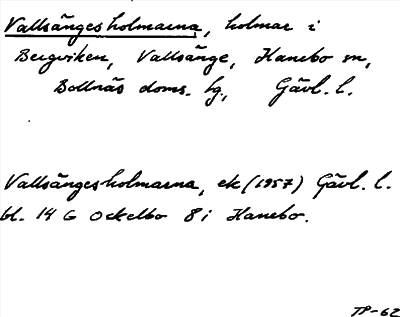 Vallsängesholmarna, holmar i
Bergviken, Vallsänge, Hanebo sn,
Bollnäs doms. hg., Gävl. l.
Vallsängesholmarna, ek (1957) Gävl. l.
bl. 14 G Ockelbo 8 i Hanebo.
TP-62